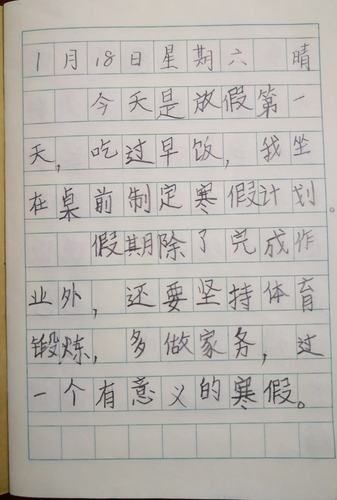 1月18日星期六 晴
今天是放假第一
天，吃过早饭，我坐
在桌前制定寒假计划。
假期除了完成作
业外，还要坚持体育
锻炼，多做家务，过
一个有意义的寒假。